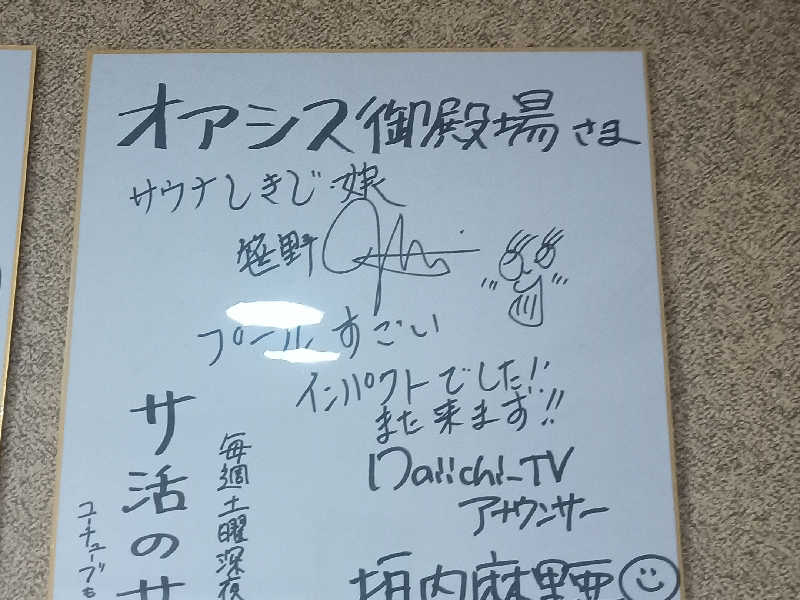 オアシス御殿場さま
サウナしきじ娘
笹野
プールすごい
インパクトでした!!
また来ます!!
Daiichi-TV
アナウンサー
垣内麻里亜
サ活のサ
毎週土曜深夜
ユーチューブも